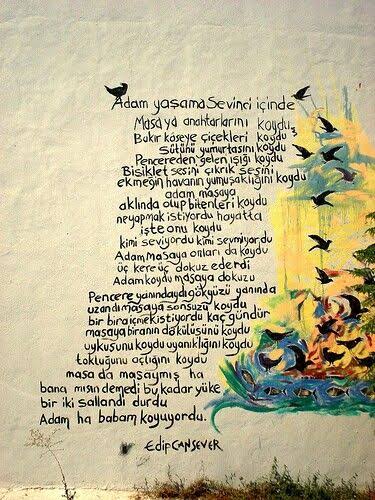 Adam yaşama Sevinci içinde
Masaya anahtarlarını koydu
Bakır kâseye çiçekleri koydu
Sütünü yumurtasını koydu
Pencereden gelen ışığı koydu
Bisiklet sesini çıkrık sesini
ekmeğin havanın yumuşaklığını koydu
adam masaya
aklında olup bitenleri koydu
ne yapmak istiyordu hayatta
işte onu koydu
kimi seviyordu kimi sevmiyordu
Adam masaya onları da koydu
üç kere üç dokuz ederdi
Adam koydu masaya dokuzu
Pencere yanındaydı gökyüzü yanında
uzandı masaya sonsuzu koydu
bir bira içmek istiyordu kaç gündür
masaya biranın dökülüşünü koydu
uykusunu koydu uyanıklığını koydu
tokluğunu açlığını koydu
masa da masaymış ha
bana mısın demedi bu kadar yüke
bir iki sallandı durdu
Adam ha babam koyuyordu.
Edip CANSEVER